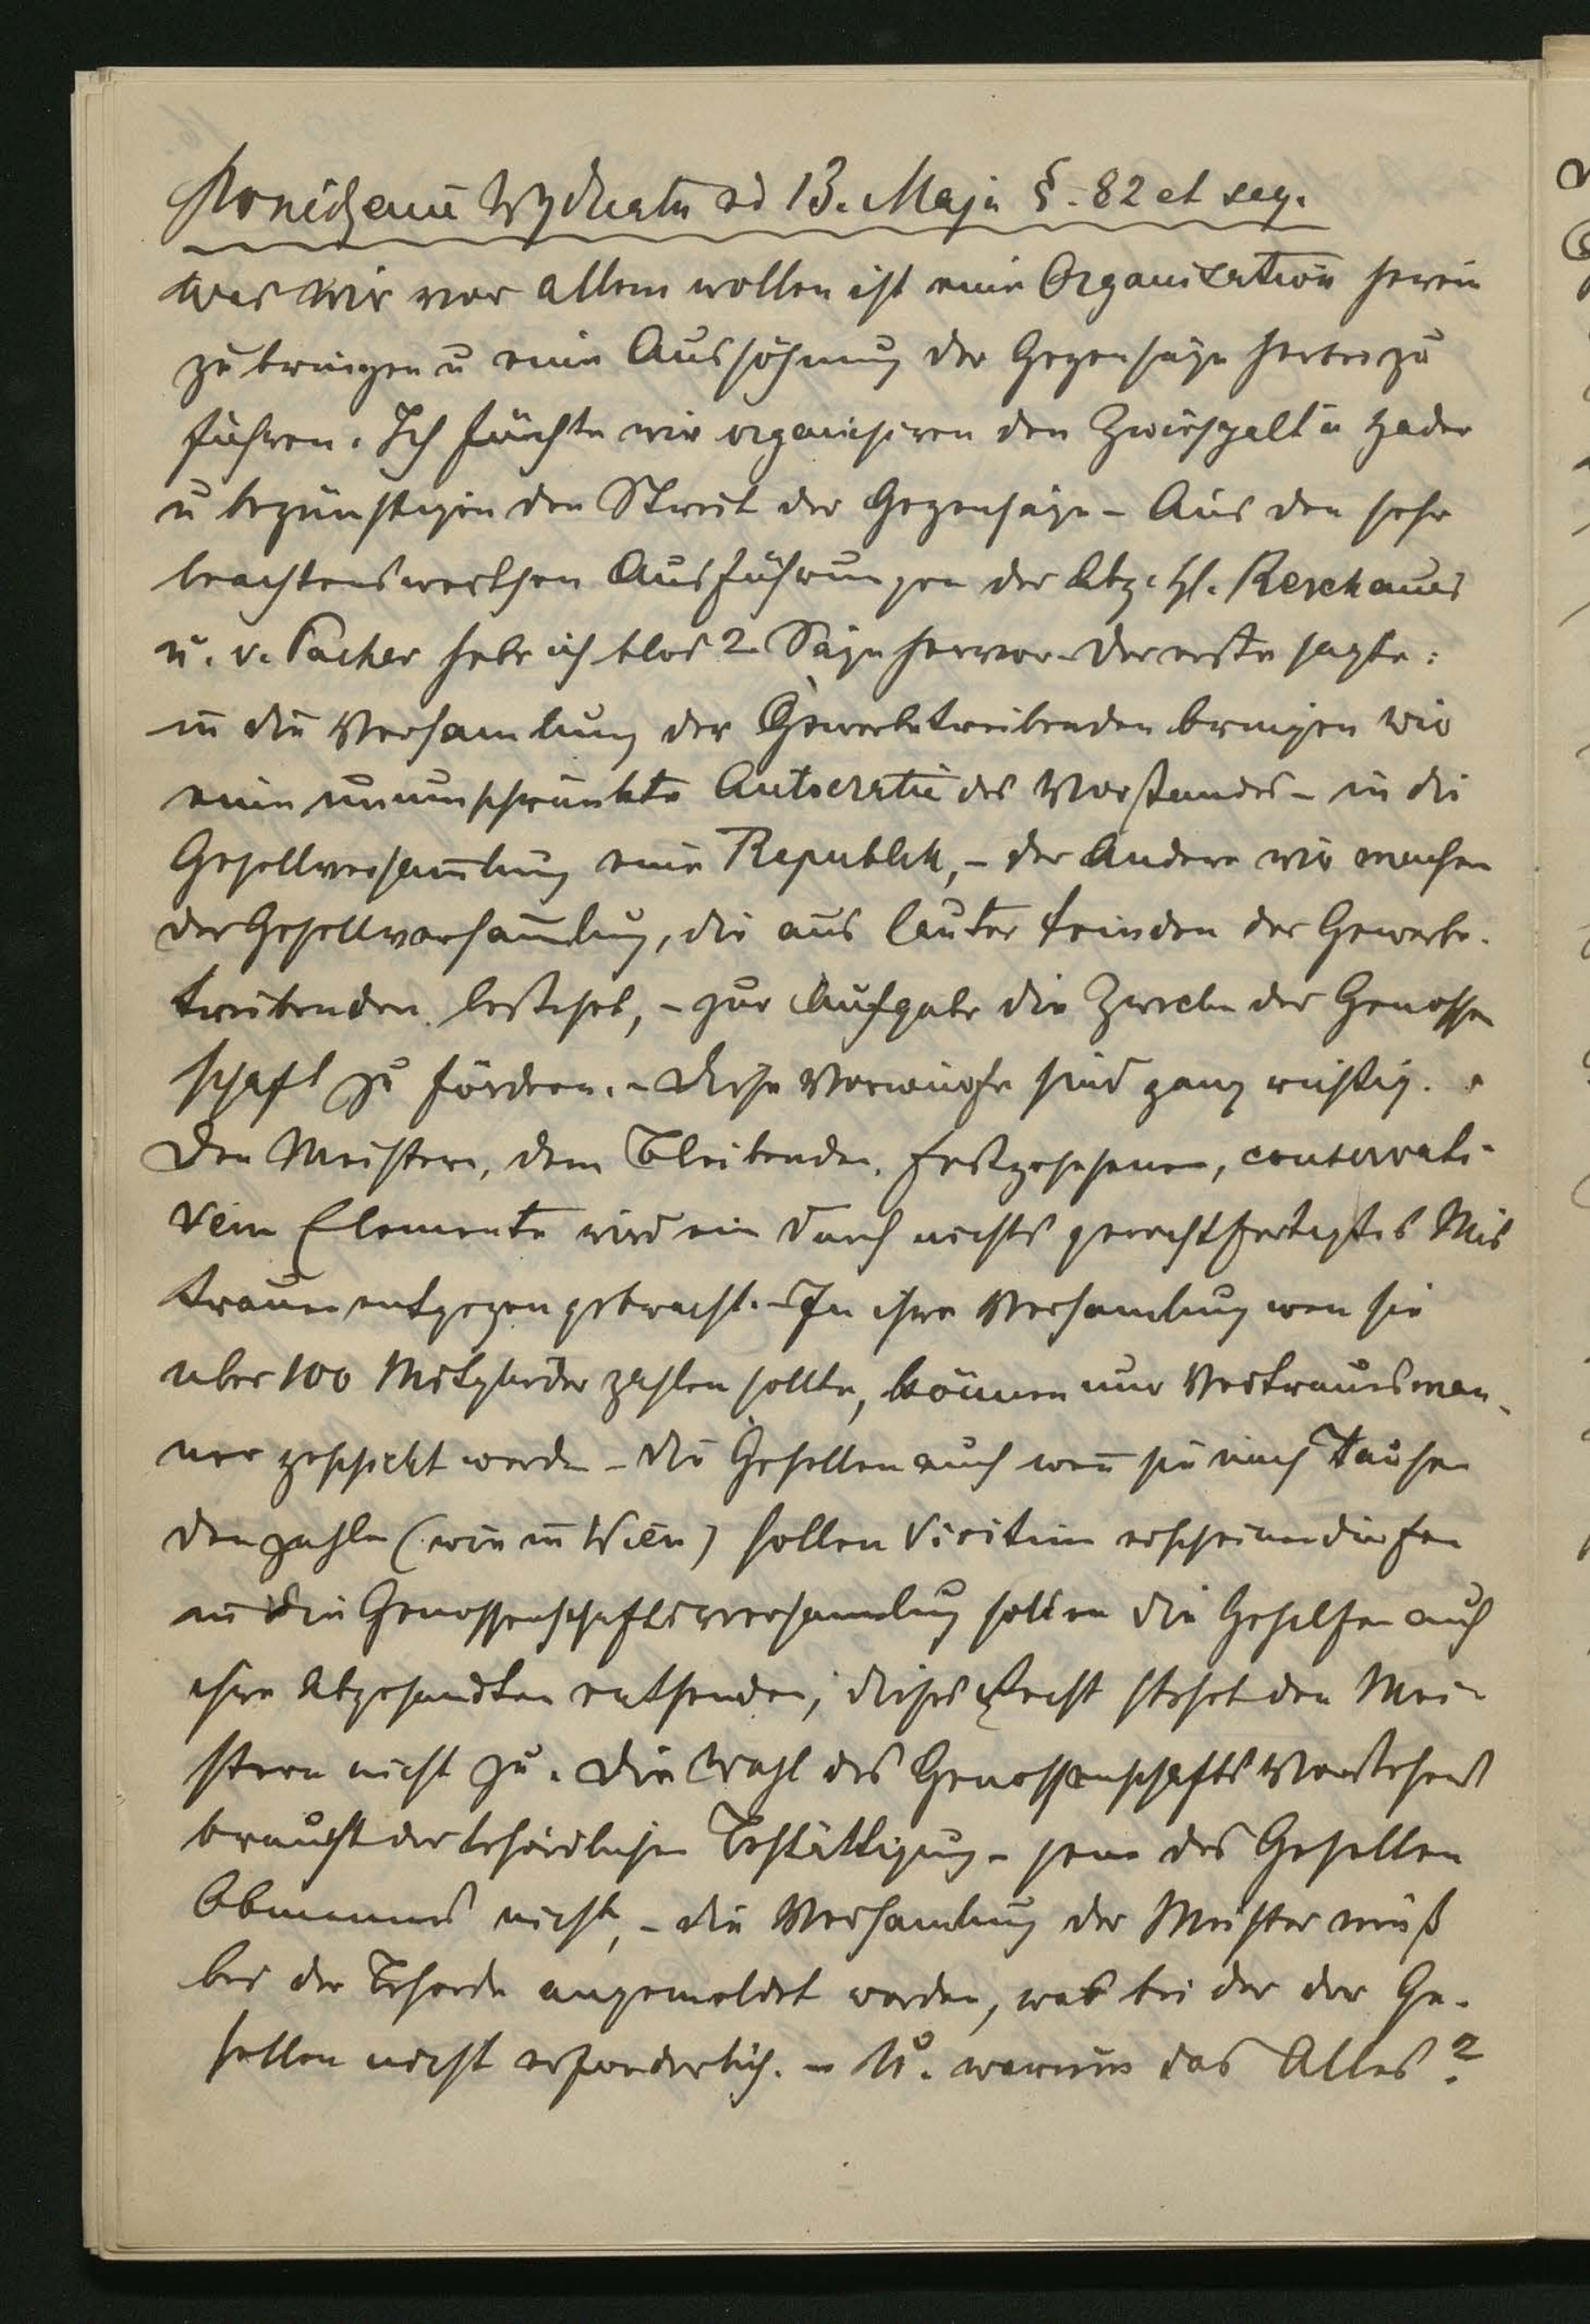 Posiedzenie Wydziału od 13. Maja §. 82 et seq.
Was wir vor allem wollen ist eine Organisation herein
zu bringen u eine Aussöhnung der Gegensäze herbeizu
führen. Ich fürchte wir organisiren den Zwiespalt u Hader
u begünstigen den Streit der Gegensäze – Aus den sehr
beachtenswerthen Ausführungen der Abg. H. Reschauer
u. v. Pacher hebe ich blos 2 Säze hervor der erste sagte:
in die Versamlung der Gewerbetreibenden bringen wir
eine unumschränkte Autocratie des Vorstandes – in die
Gesellversam̄lung eine Republik, – der Andere wir machen
der Gesellversam̄lung, die aus lauter Feinden der Gewerbe-
treibenden besteht, – zur Aufgabe die Zwecke der Genossen
schaft zu fördern. – Diese Vorwürfe sind ganz richtig.
Den Meistern, dem Bleibenden, festgesessenen, conservati-
ven Elemente wird ein durch nichts gerechtfertigtes Mis
trauen entgegen gebracht. – In ihre Versamlung wen sie
uber 100 Mitglieder zahlen sollte, können nur Vertrauensman-
ner geschickt werden – die Gesellen auch wen̄ sie nach Tausen
den zahlen (wie in Wien) sollen Viritim erscheinen dürfen
in die Genossenschaftsversamlung sollen die Gehilfen auch
ihre Abgesandten entsenden, dieses Recht stehet den Mei-
stern nicht zu. Die Wahl des Genossenschafts Vorstehers
braucht der behördlichen Bestättigung – jene des Gesellen
Obmannes nicht, – die Versamlung der Meister muß
bei der Behorde angemeldet werden, was bei der der Ge-
sellen nicht erforderlich. – U. warum das Alles?